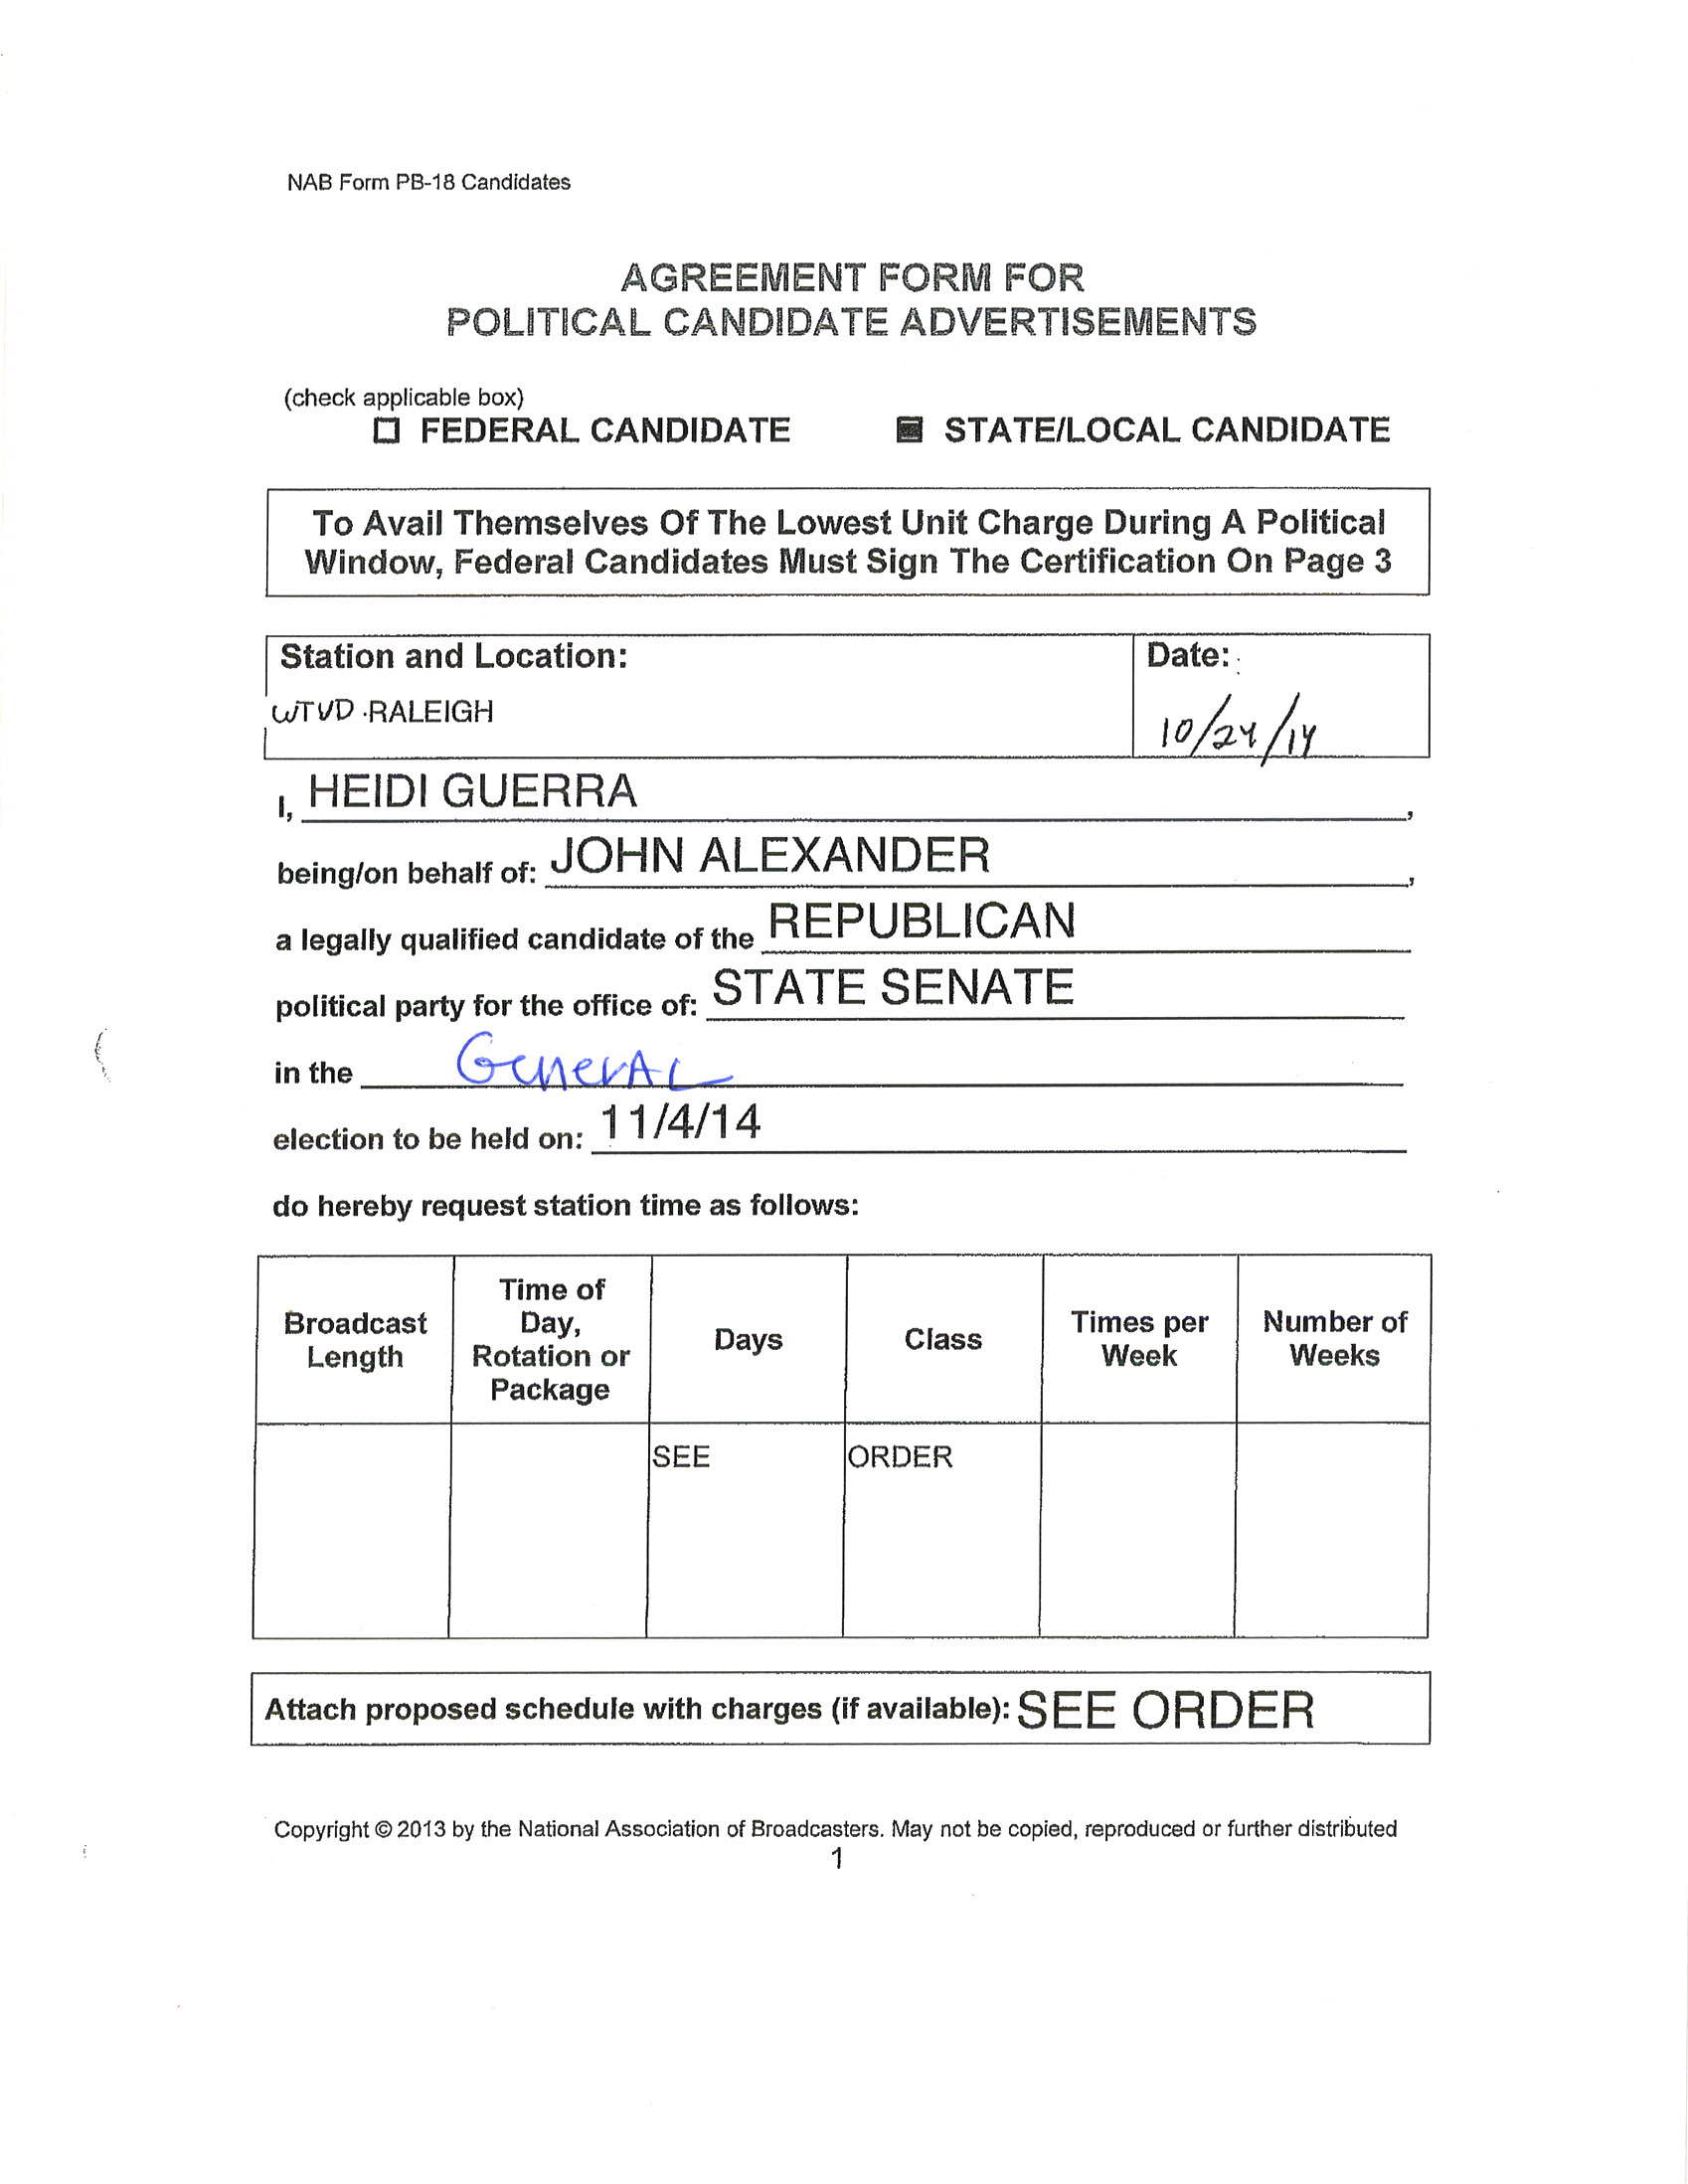 NAB Form PB-18 Candidates
AGREEMENT FORM FOR
POLITICAL CANDIDATE ADVERTISEMENTS
(check applicable box)
☐ FEDERAL CANDIDATE ☒ STATE/LOCAL CANDIDATE
To Avail Themselves Of The Lowest Unit Charge During A Political
Window, Federal Candidates Must Sign The Certification On Page 3
Station and Location: Date:
WTVD RALEIGH 10/24/14
I, HEIDI GUERRA,
being/on behalf of: JOHN ALEXANDER,
a legally qualified candidate of the REPUBLICAN
political party for the office of: STATE SENATE
in the GenerAL
election to be held on: 11/4/14
do hereby request station time as follows:
Broadcast Length Time of Day, Rotation or Package Days Class Times per Week Number of Weeks
SEE ORDER
Attach proposed schedule with charges (if available): SEE ORDER
Copyright © 2013 by the National Association of Broadcasters. May not be copied, reproduced or further distributed
1